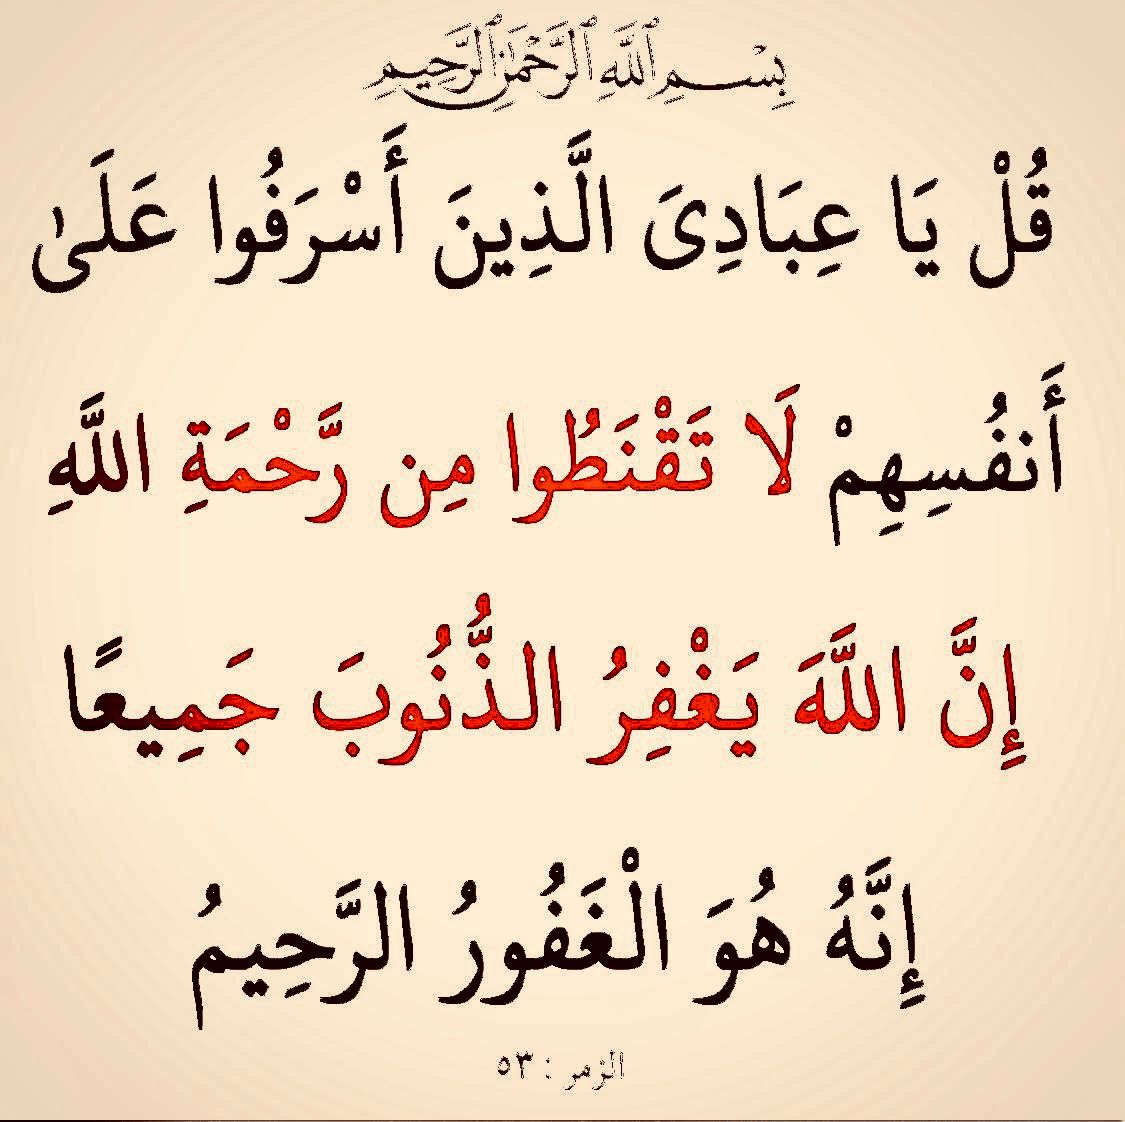 بِسْمِ ٱللَّهِ ٱلرَّحْمَٰنِ ٱلرَّحِيمِ
قُلْ يَا عِبَادِىَ الَّذِينَ أَسْرَفُوا عَلَىٰ
أَنفُسِهِمْ لَا تَقْنَطُوا مِن رَّحْمَةِ اللَّهِ
إِنَّ اللَّهَ يَغْفِرُ الذُّنُوبَ جَمِيعًا
إِنَّهُ هُوَ الْغَفُورُ الرَّحِيمُ
الزمر : ٥٣